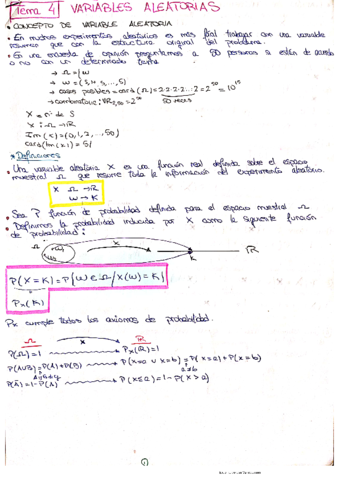 Tema 4 VARIABLES ALEATORIAS
• CONCEPTO DE VARIABLE ALEATORIA
• En muchos experimentos aleatorios es más fácil trabajar con una variable
resumen que con la estructura original del problema.
• En una encuesta de opinión preguntamos a 50 personas si están de acuerdo
o no con un determinado tema
→ Ω = {ω
→ ω = (S, N, S, ..., S)
→ casos posibles = card(Ω) = 2·2·2·2...·2 = 2^50 = 10^15
50 veces
X = nº de S
X : Ω → R
Im(X) = {0, 1, 2, ..., 50}
card(Im X) = 51
• Definiciones
• Una variable aleatoria X es una función real definida sobre el espacio
muestral Ω que resume toda la información del experimento aleatorio.
X Ω → R
ω → K
• Sea P función de probabilidad definida para el espacio muestral Ω
• Definimos la probabilidad inducida por X como la siguiente función
de probabilidad:
Ω X R
K
P(X = K) = P{ω ∈ Ω / X(ω) = K}
Px(K)
Px cumple todos los axiomas de probabilidad.
Ω X R
P(Ω) = 1 → Px(R) = 1
P(A∪B) = P(A) + P(B) → P(X = a ∪ X = b) = P(X = a) + P(X = b)
a ≠ b
P(Ā) = 1 - P(A) → P(X ≤ a) = 1 - P(X > a)
1